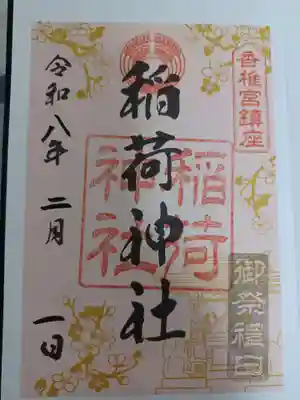 香椎宮鎮座
稲荷神社
稲荷
神社
御祭禮日
令和八年 二月 一日